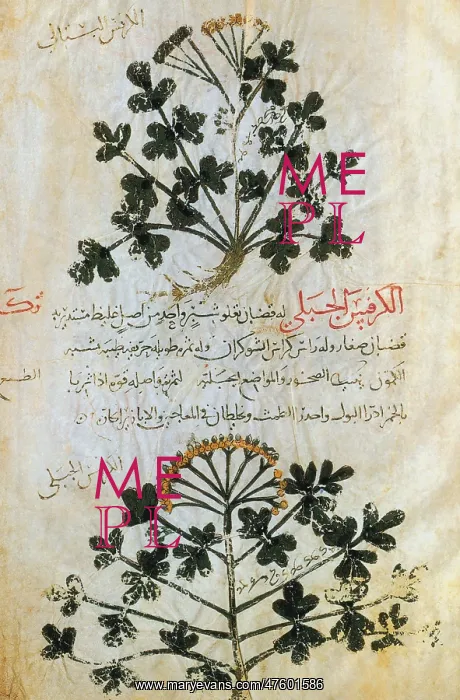 الكرفس البستاني
ME
PL
الكرفس الجبلي له قضبان تعلو شبر واحد من اصل غليظ مستدير
قضبان صغار وله راس كراس الشوكران وله ثمره طويله حريفه طيبه
الكمون ينبت الصخور والمواضع الجبلية لثمره واصله قوه اذا شربا
بالخمر ادرا البول واحدرا الطمث ويخلطان في المعاجين
الكرفس الجبلي
ME
PL
www.maryevans.com/47601586